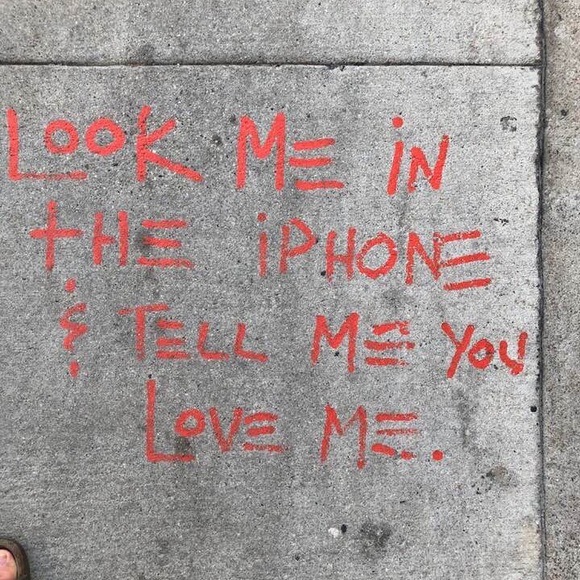 LOOK ME iN
tHE iPHONE
& TELL ME YOU
LOVE ME.